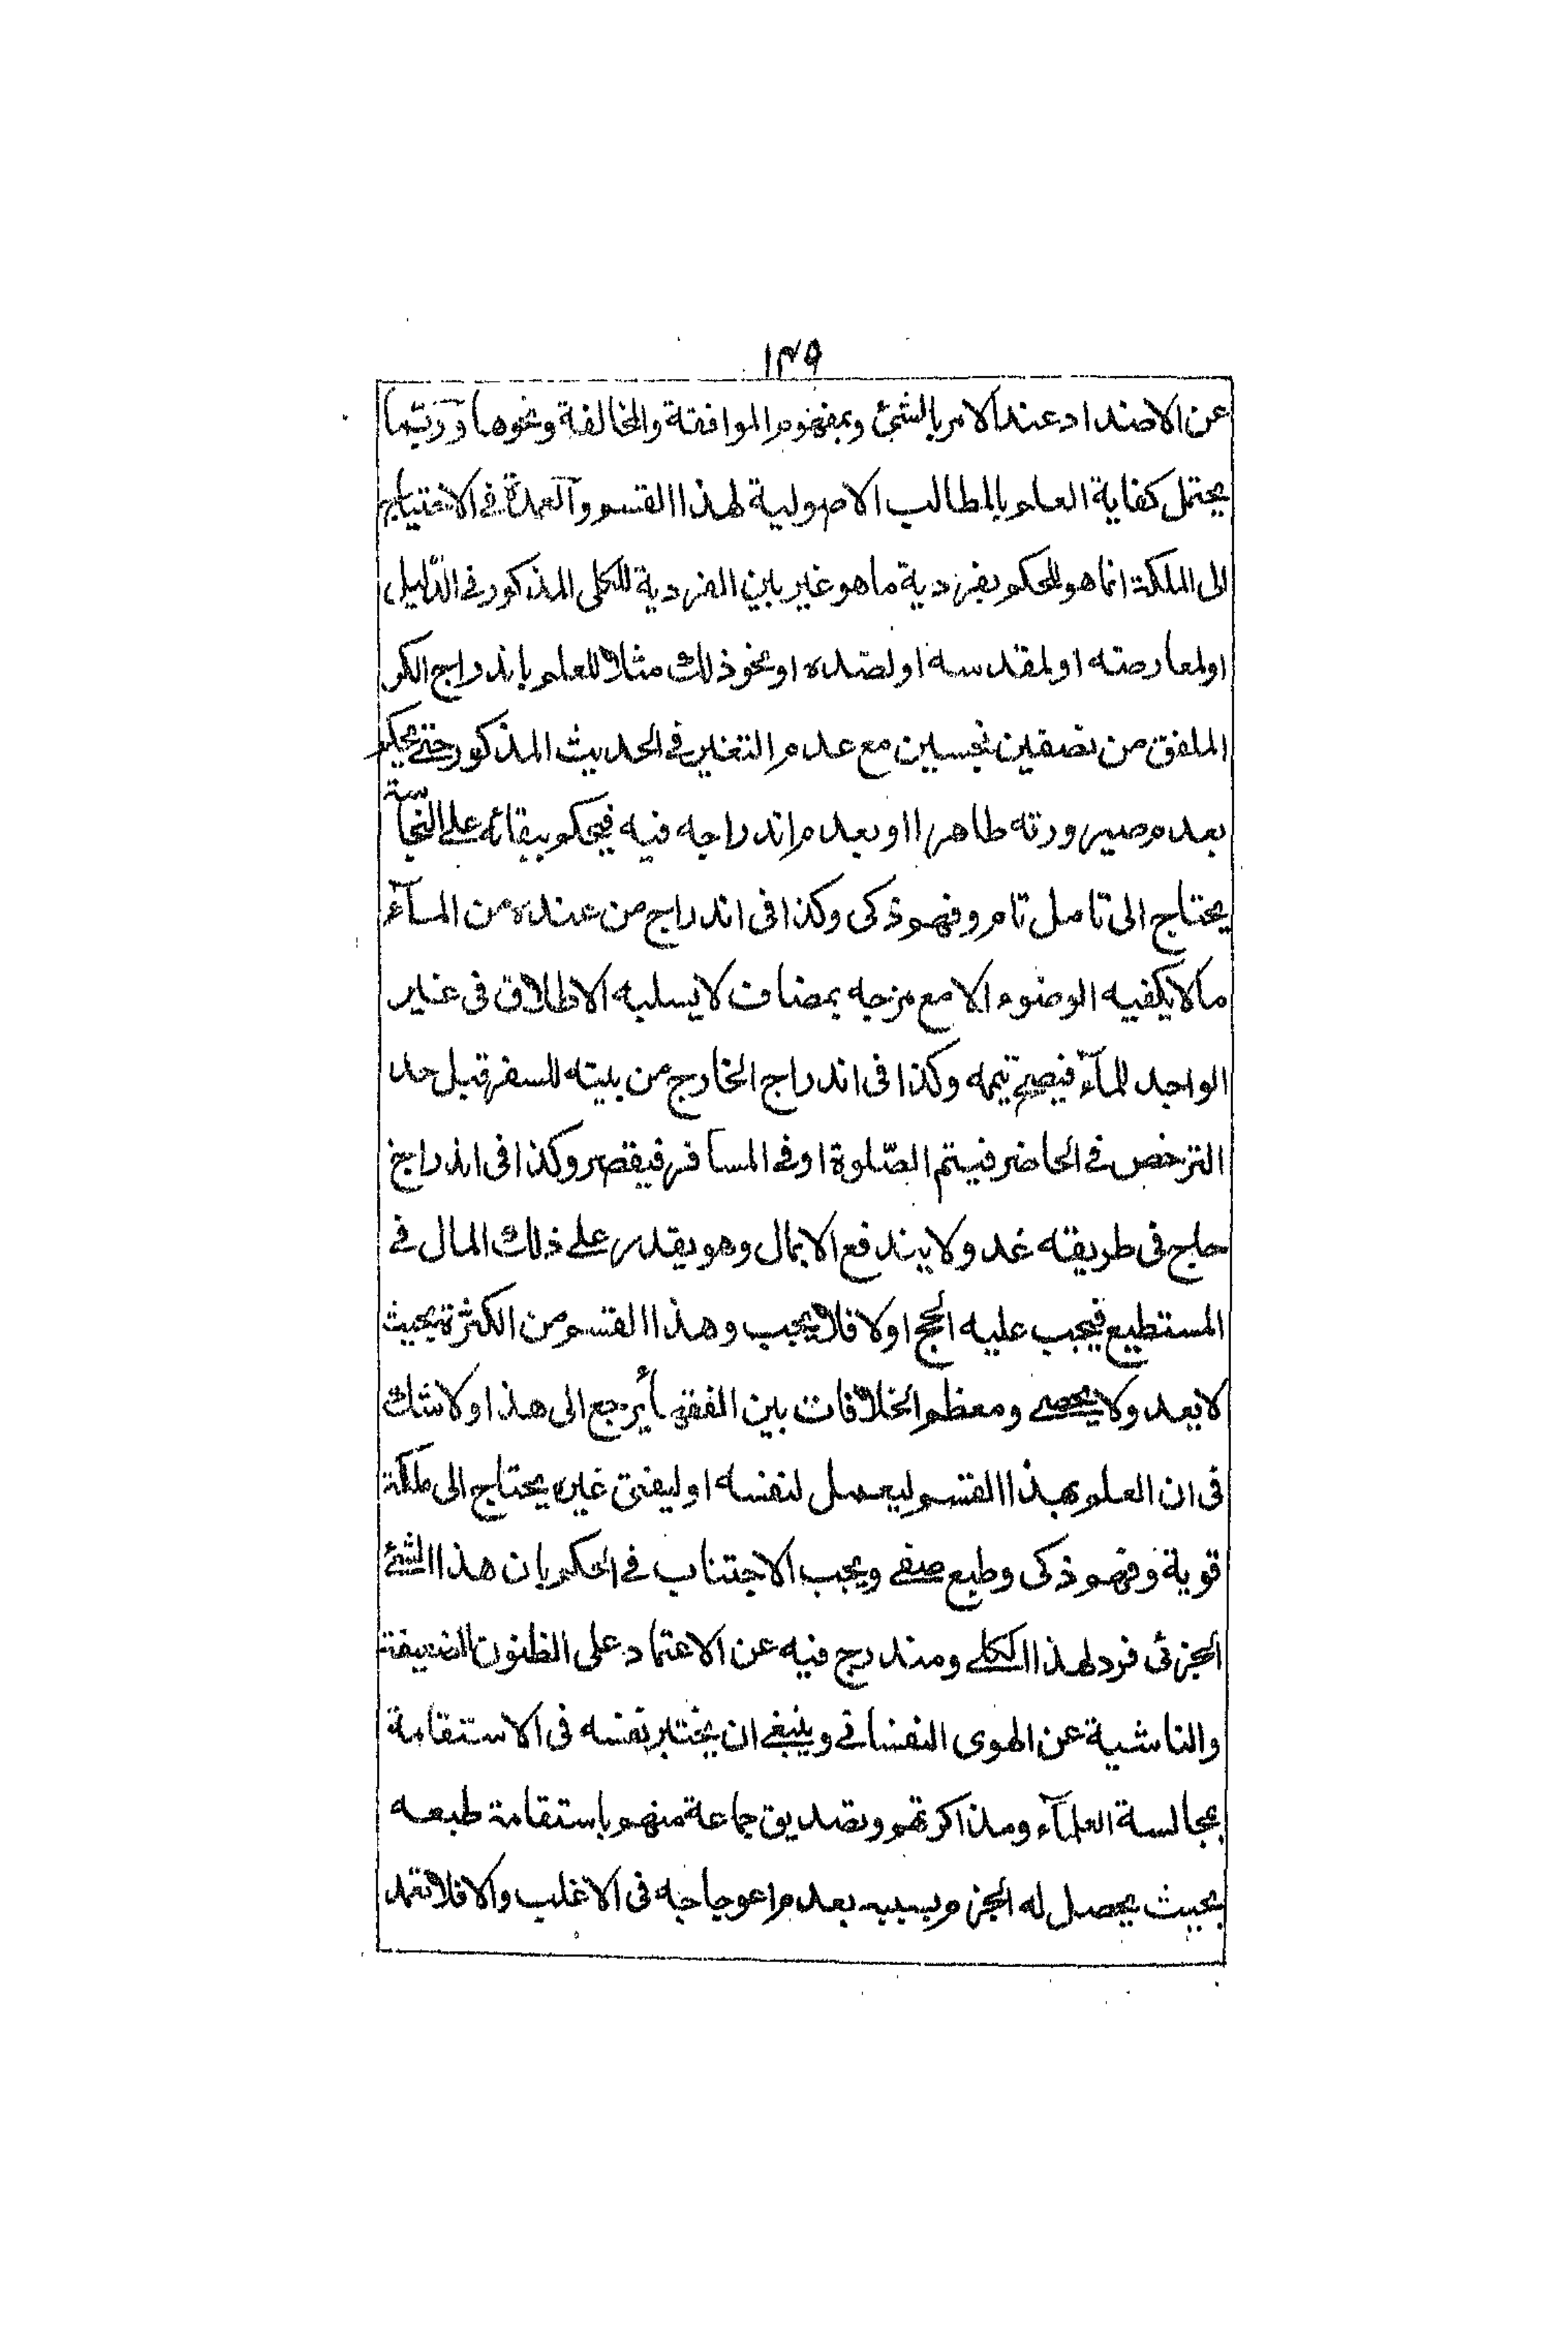 ١٣٩
عن الاضداد عند الامر بالشئ وبمفهوم الموافقة والمخالفة ونحوها وربّما
يحتمل كفاية العلم بالمطالب الاصولية لهذا القسم والعمدة في الاحتياج
الى الملكة انما هو للحكم بفردية ما هو غير بين الفردية للكلى المذكور في الدّليل
او لمعارضته او لمقدمته او لضده او نحو ذلك مثلا للعلم باندراج الكر
الملفق من نصفين نجسين مع عدم التغير في الحديث المذكور حتى يحكم
بعدم صيرورته طاهرا او بعدم اندراجه فيه فيحكم ببقائه على النجاسة
يحتاج الى تامل تام وفهم ذكى وكذا فى اندراج من عنده من المآء
ما لا يكفيه الوضوء الا مع مزجه بمضاف لا يسلبه الاطلاق فى غير
الواجد للمآء فيصح تيممه وكذا فى اندراج الخارج من بيته للسفر قبل حد
الترخص في الحاضر فيتم الصّلوة او في المسافر فيقصر وكذا فى اندراج
حاج فى طريقه عدو لا يندفع الا بمال وهو يقدر على ذلك المال في
المستطيع فيجب عليه الحج او لا فلا يجب وهذا القسم من الكثرة بحيث
لا يعد ولا يحصى ومعظم الخلافات بين الفقهاء يرجع الى هذا ولا شك
فى ان العلم بهذا القسم ليعمل لنفسه او ليفتى غيره يحتاج الى ملكة
قوية وفهم ذكى وطبع صفى ويجب الاجتناب في الحكم بان هذا الشئ
الجزئى فرد لهذا الكلى ومندرج فيه عن الاعتماد على الظنون الضعيفة
والناشية عن الهوى النفسانى وينبغى ان يختبر نفسه فى الاستقامة
بمجالسة العلمآء ومذاكرتهم وتصديق جماعة منهم باستقامة طبعه
بحيث يحصل له الجزم بسببه بعدم اعوجاجه فى الاغلب والا فلا تعتمد